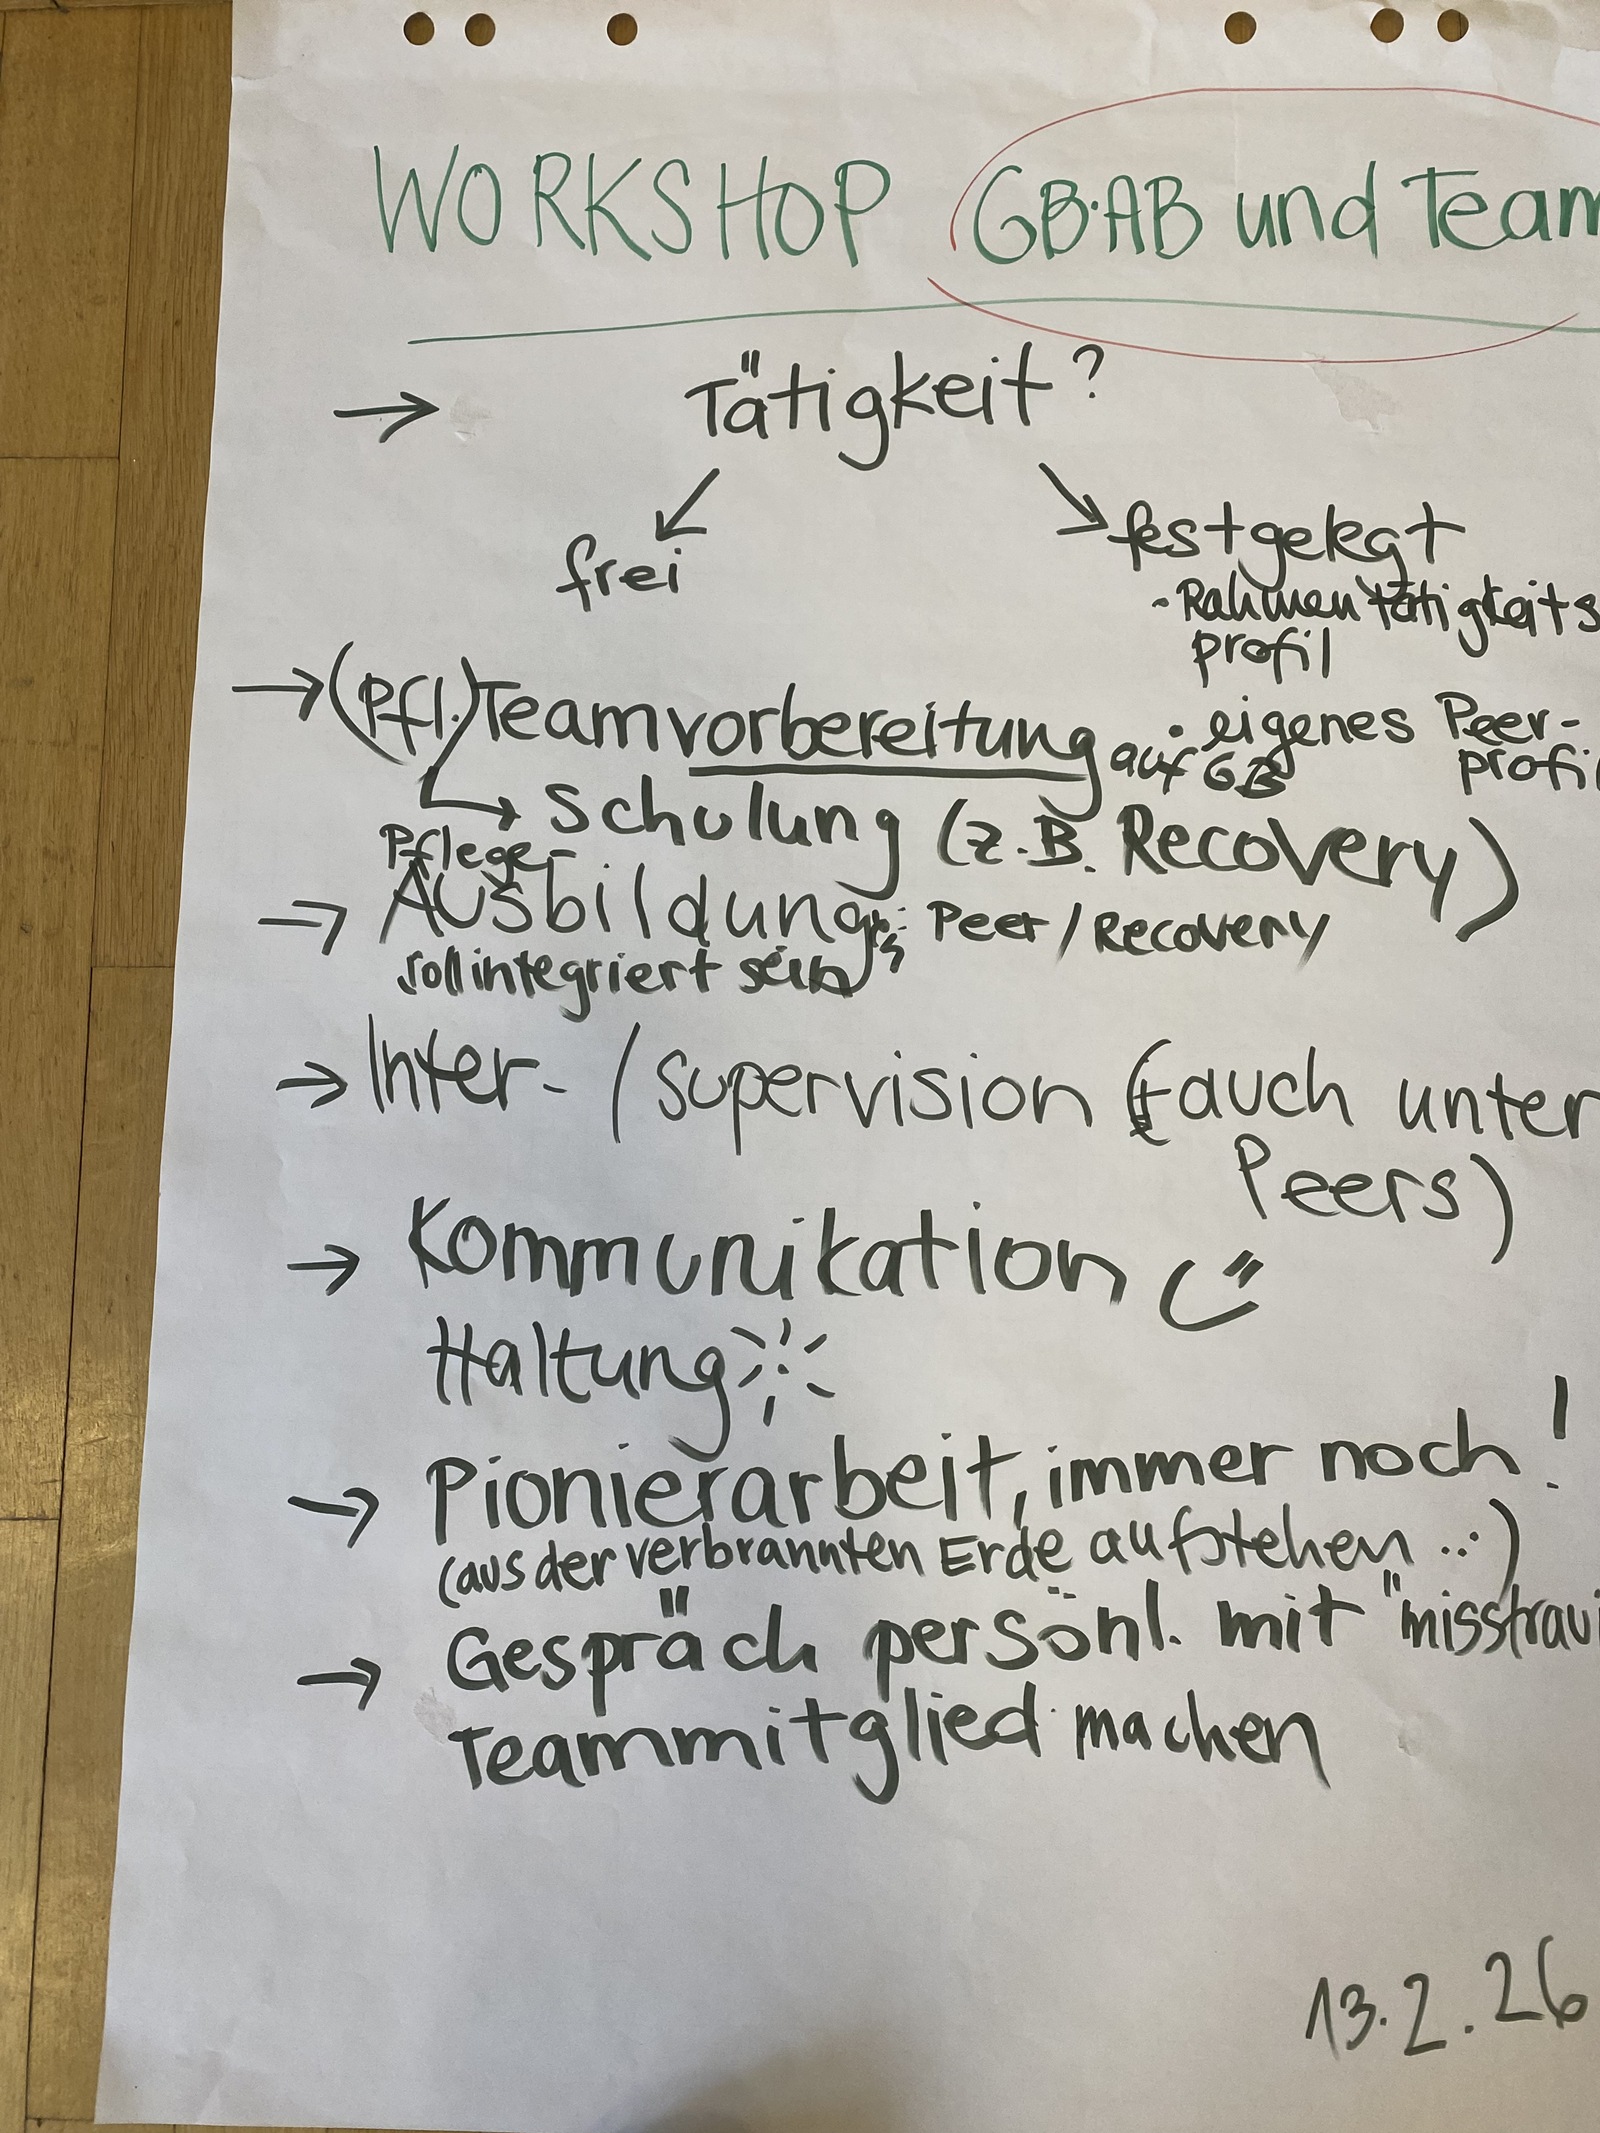 WORKSHOP GB·AB und Team
→ Tätigkeit?
frei
festgelegt
- Rahmentätigkeits
profil
→ (Pfl.) Teamvorbereitung auf GB
· eigenes Peer-
profi
→ Schulung (z.B. Recovery)
Pflege-
→ Ausbildung: Peer/Recovery
soll integriert sein
→ Inter- / Supervision (auch unter
Peers)
→ Kommunikation
Haltung
→ Pionierarbeit, immer noch!
(aus der verbrannten Erde aufstehen...)
→ Gespräch persönl. mit "misstraui
Teammitglied machen
13.2.26